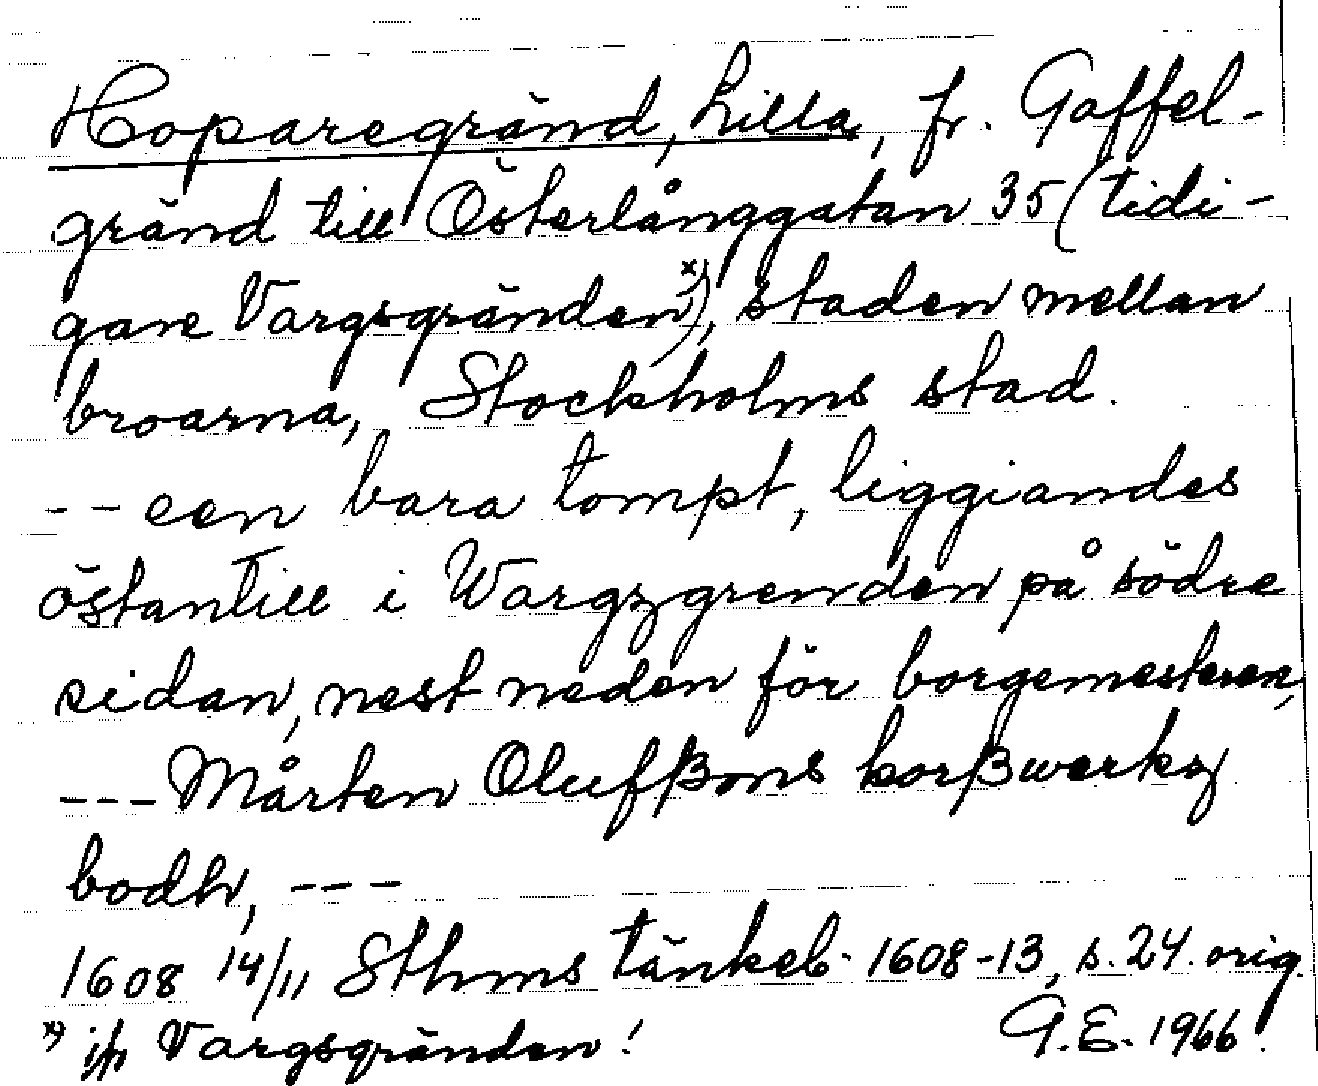 Hoparegränd, Lilla, fr. Gaffel-
gränd till Österlånggatan 35 (tidi-
gare Vargsgränden x)), staden mellan
broarna, Stockholms stad.
-- een bara tompt, liggiandes
östantill i Wargzgrenden på södre
sidan, nest neden för borgemesteren,
--- Mårten Olufßons korßwerkz
bodh, ---
1608 14/11 Sthms tänkeb. 1608-13, s. 24. orig.
x) jfr Vargsgränden! G.E. 1966.